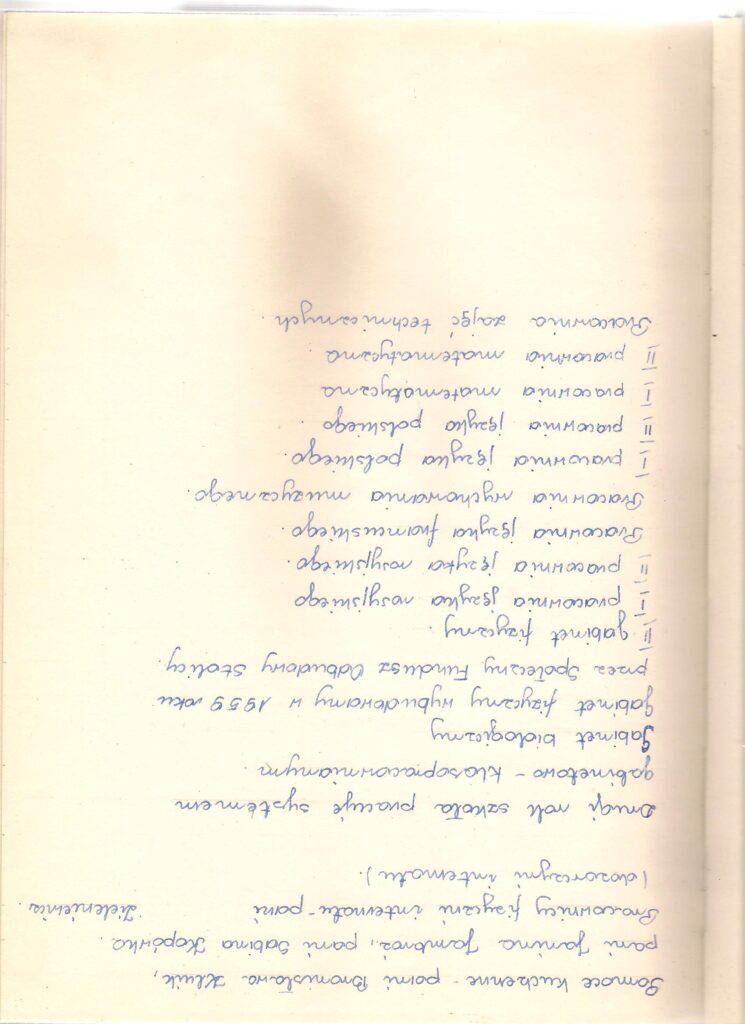 Pomoce kuchenne - pani Bronisława Kluk,
pani Janina Jambroż, pani Sabina Kopówka.
Pracownicy fizyczni internatu - pani Zielenienia.
(dozorczyni internatu).
Drugi rok szkoła pracuje systemem
gabinetowo - klasopracownianym.
Gabinet biologiczny
gabinet fizyczny wybudowany w 1959 roku
przez Społeczny Fundusz Odbudowy Stolicy.
II gabinet fizyczny.
I pracownia języka rosyjskiego
II pracownia języka rosyjskiego.
Pracownia języka francuskiego.
Pracownia wychowania muzycznego.
I pracownia języka polskiego.
II pracownia języka polskiego.
I pracownia matematyczna
II pracownia matematyczna
Pracownia zajęć technicznych.